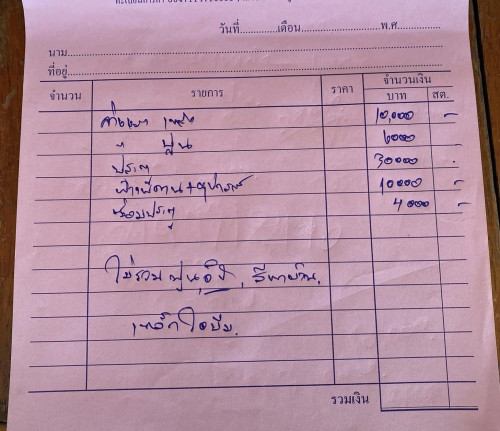 วันที่..............เดือน..............................พ.ศ..................
นาม....................................................................
ที่อยู่....................................................................
จำนวน รายการ ราคา จำนวนเงิน
บาท สต.
10,000 -
" ปูน 6000
ประตู 30000 .
ฝ้าเพดาน+อุปกรณ์ 10000 -
ซ่อมประตู 4000 -
ไม่รวมปูน, สีทาบ้าน.
เหล็กไอบีม.
รวมเงิน